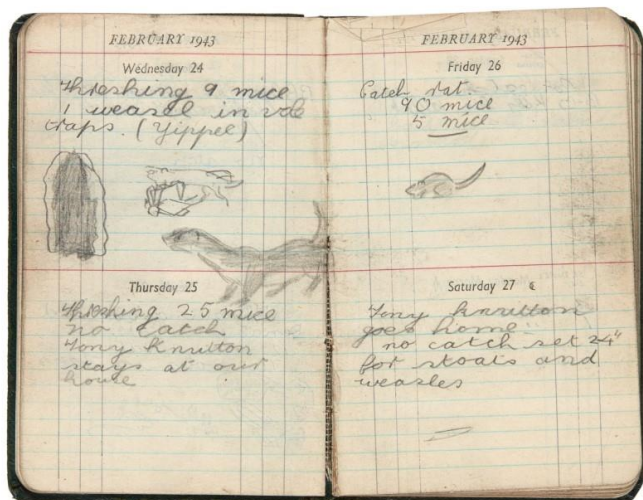 FEBRUARY 1943
Wednesday 24
Threshing 9 mice
1 weasel in
traps. (Yippee)
Thursday 25
Threshing 25 mice
no catch
Tony Knutton
stays at our
house
FEBRUARY 1943
Friday 26
Catch rat
90 mice
5 mice
Saturday 27
Tony Knutton
goes home
no catch set 24
for stoats and
weasles